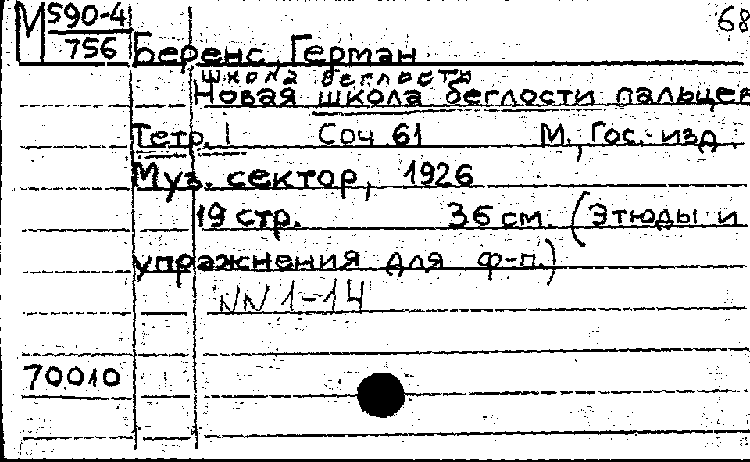 М 590-4 68
756 Беренс, Герман
школа беглости
Новая школа беглости пальцев
Тетр. 1 Соч 61 М., Гос. изд.
Муз. сектор, 1926
19 стр. 36 см. (Этюды и
упражнения для ф-п.)
NN 1-14
70010